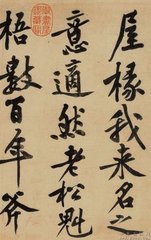 屋椽我来名之
意適然老松魁
梧數百年斧